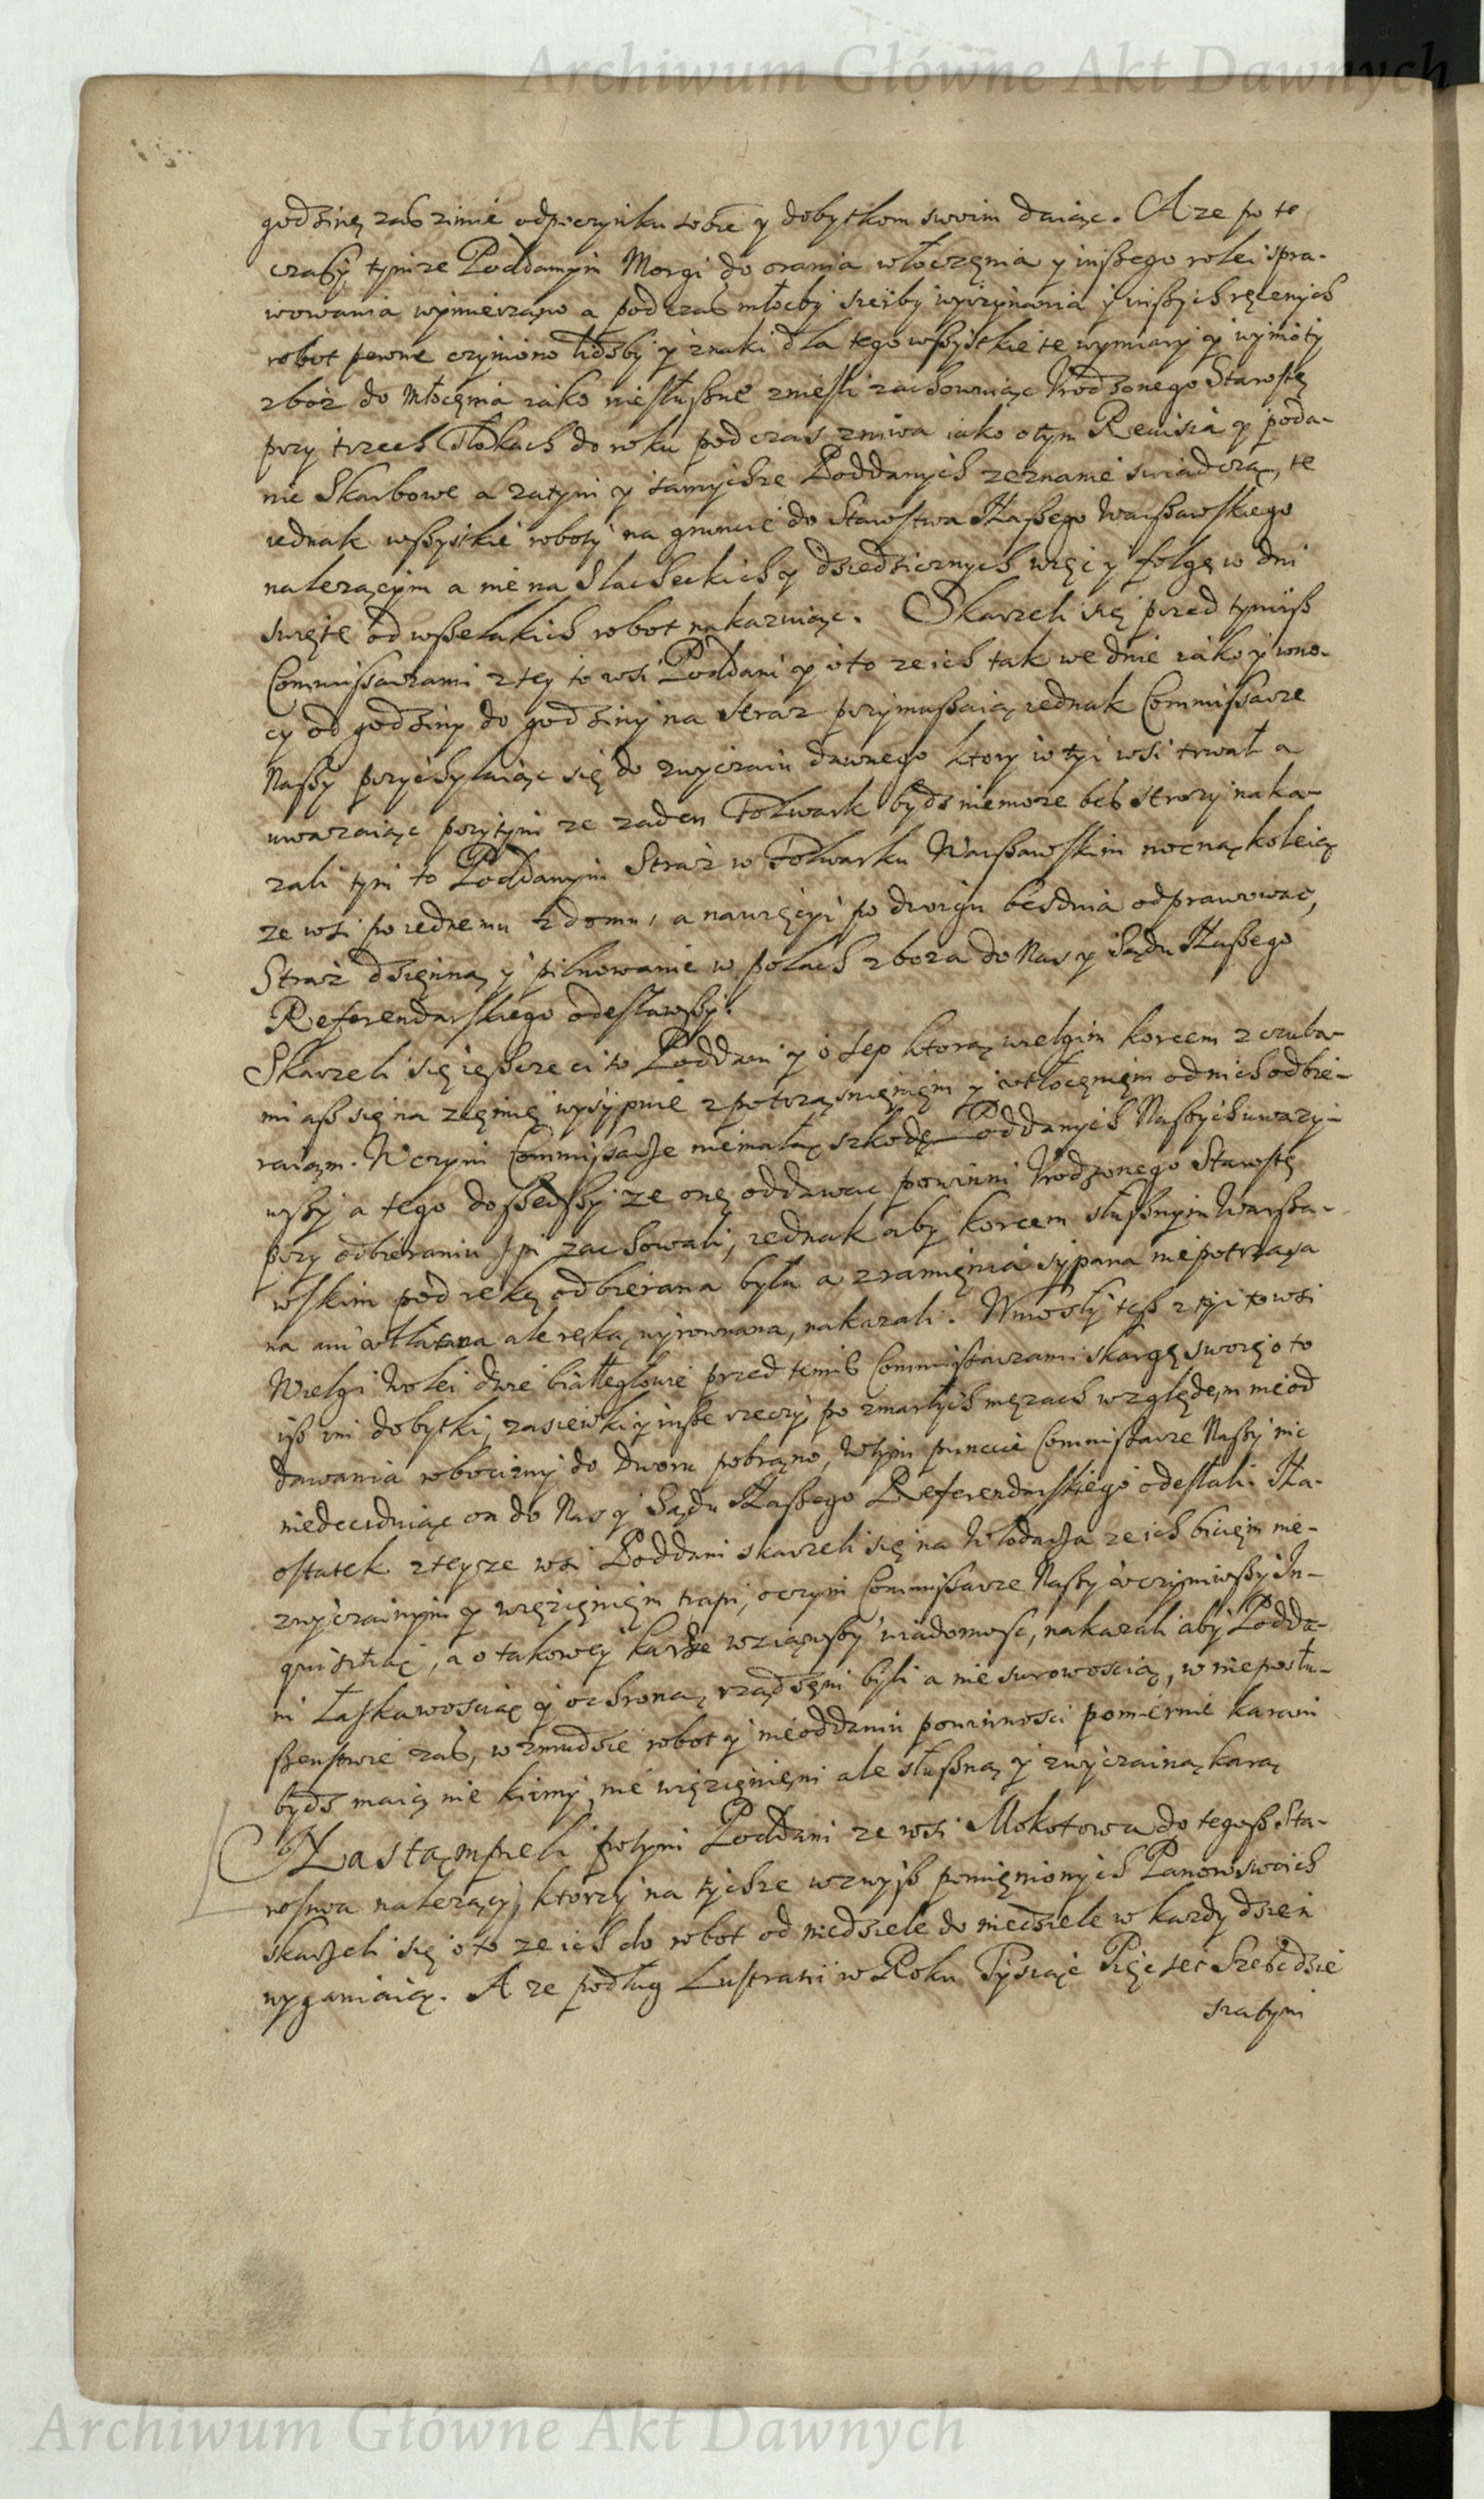 Archiwum Główne Akt Dawnych
godzinę zas zimie odpoczynku sobie y dobytkom swoim daiąc. A ze po te
czasy tymze Poddanym Morgi do orania włoczęnia y inßego rolei spra-
wowania wymierząno a podczas młocby sieiby wyrzynania y inßych ręcznych
robot pewne czyniono liczby y znaki dla tego wßystkie te wymiary y wymioty
zboz do Młocęnia iako niesłußne znieśli zachowuiąc Urodzonego Starostę
przy trzech Tłokach do roku podczas zniwa iako otym Rewisia y poda-
nie Skarbowe a zatym y samychze Poddanych zeznanie swiadczą, te
iednak wßystkie roboty na gruncie do Starostwa Naßego Warßawskiego
nalezącym a nie na Slacheckich y dziedzicznych więc y folgę w dni
swięte od wßelakich robot nakazuiąc. Skarzeli się przed tymiß
Commissarzami z tey to wsi Poddani y o to ze ich tak we dnie iako y wno-
cy od godziny do godziny na straz przymußaią iednak Commissarze
Naßy przychylaiąc się do zwyczaiu dawnego ktory w tyi wsi trwał a
uwazaiąc przytym ze zaden Folwark bydz niemoze bes strozy naka-
zali tym to Poddanym Straz w Folwarku Warßawskim nocną koleią
ze wsi po iednemu z domu, a nawięcyi po dwoigu bes dnia odprawować,
Straz dzięnną y pilnowanie w polach zboza do Nas y Sądu Naßego
Referendarskiego odesławßy.
Skarzeli się ießcze ci to Poddani y o sep ktorą wielgim korcem z czuba-
mi aß się na zięmię wysypuie z potrząsnięnięm y utłocęnięm od nich odbie-
raiąm. W czym Commissarze niemałą szkodę Poddanych Naßych uwazy-
wßy a tego doßedßy ze onę oddawac powinni Urodzonego Starostę
przy odbieraniu spi zachowali, iednak aby korcem słußnym Warßa-
wskim pod rękę odbierana była a z ramięnia sypana niepotrząsa
na ani utłaczna ale ręką wyrownana, nakazali. Wniosły teß z tyi to wsi
Wielgi Wolei dwie białłegłowie przed temis Commissarzami skargę swoię o to
iß im dobytki, zasiewki y inße rzeczy po zmarłych męzach względem nieod
dawania robocizny do Dworu pobrąno, w tym punccie Commissarze Naßy nic
niedeciduiąc on do Nas y Sądu Naßego Referendarskiego odesłali. Na-
ostatek z teyze wsi Poddani skarzeli się na Włodarza ze ich bicięm nie-
zwyczainym y więzięnięm trapi, o czym Commissarze Naßy uczyniwßy In-
quisitią, a o takowey karze wziąwßy wiadomosc, nakazali aby Podda-
ni łaskawoscią y ochroną rządzęni byli a nie surowoscią, w nieposłu-
ßenstwie zas, w zmudzie robot y nieoddaniu powinnosci pomiernie karani
bydz maią nie kiimy, nie więzięnięm ale słußną y zwyczainą karą
Nastąmpieli potym Poddani ze wsi Mokotowa do tegoß Sta-
rostwa nalezący, ktorzy na tychze wzwyß pomięnionych Panow swoich
skarzeli się o to ze ich do robot od niedziele do niedziele w kazdy dzien
wyganiaią. A ze podług Lustratii w Roku Tysiąc Pięcset Szescdzie
siatym
Archiwum Główne Akt Dawnych